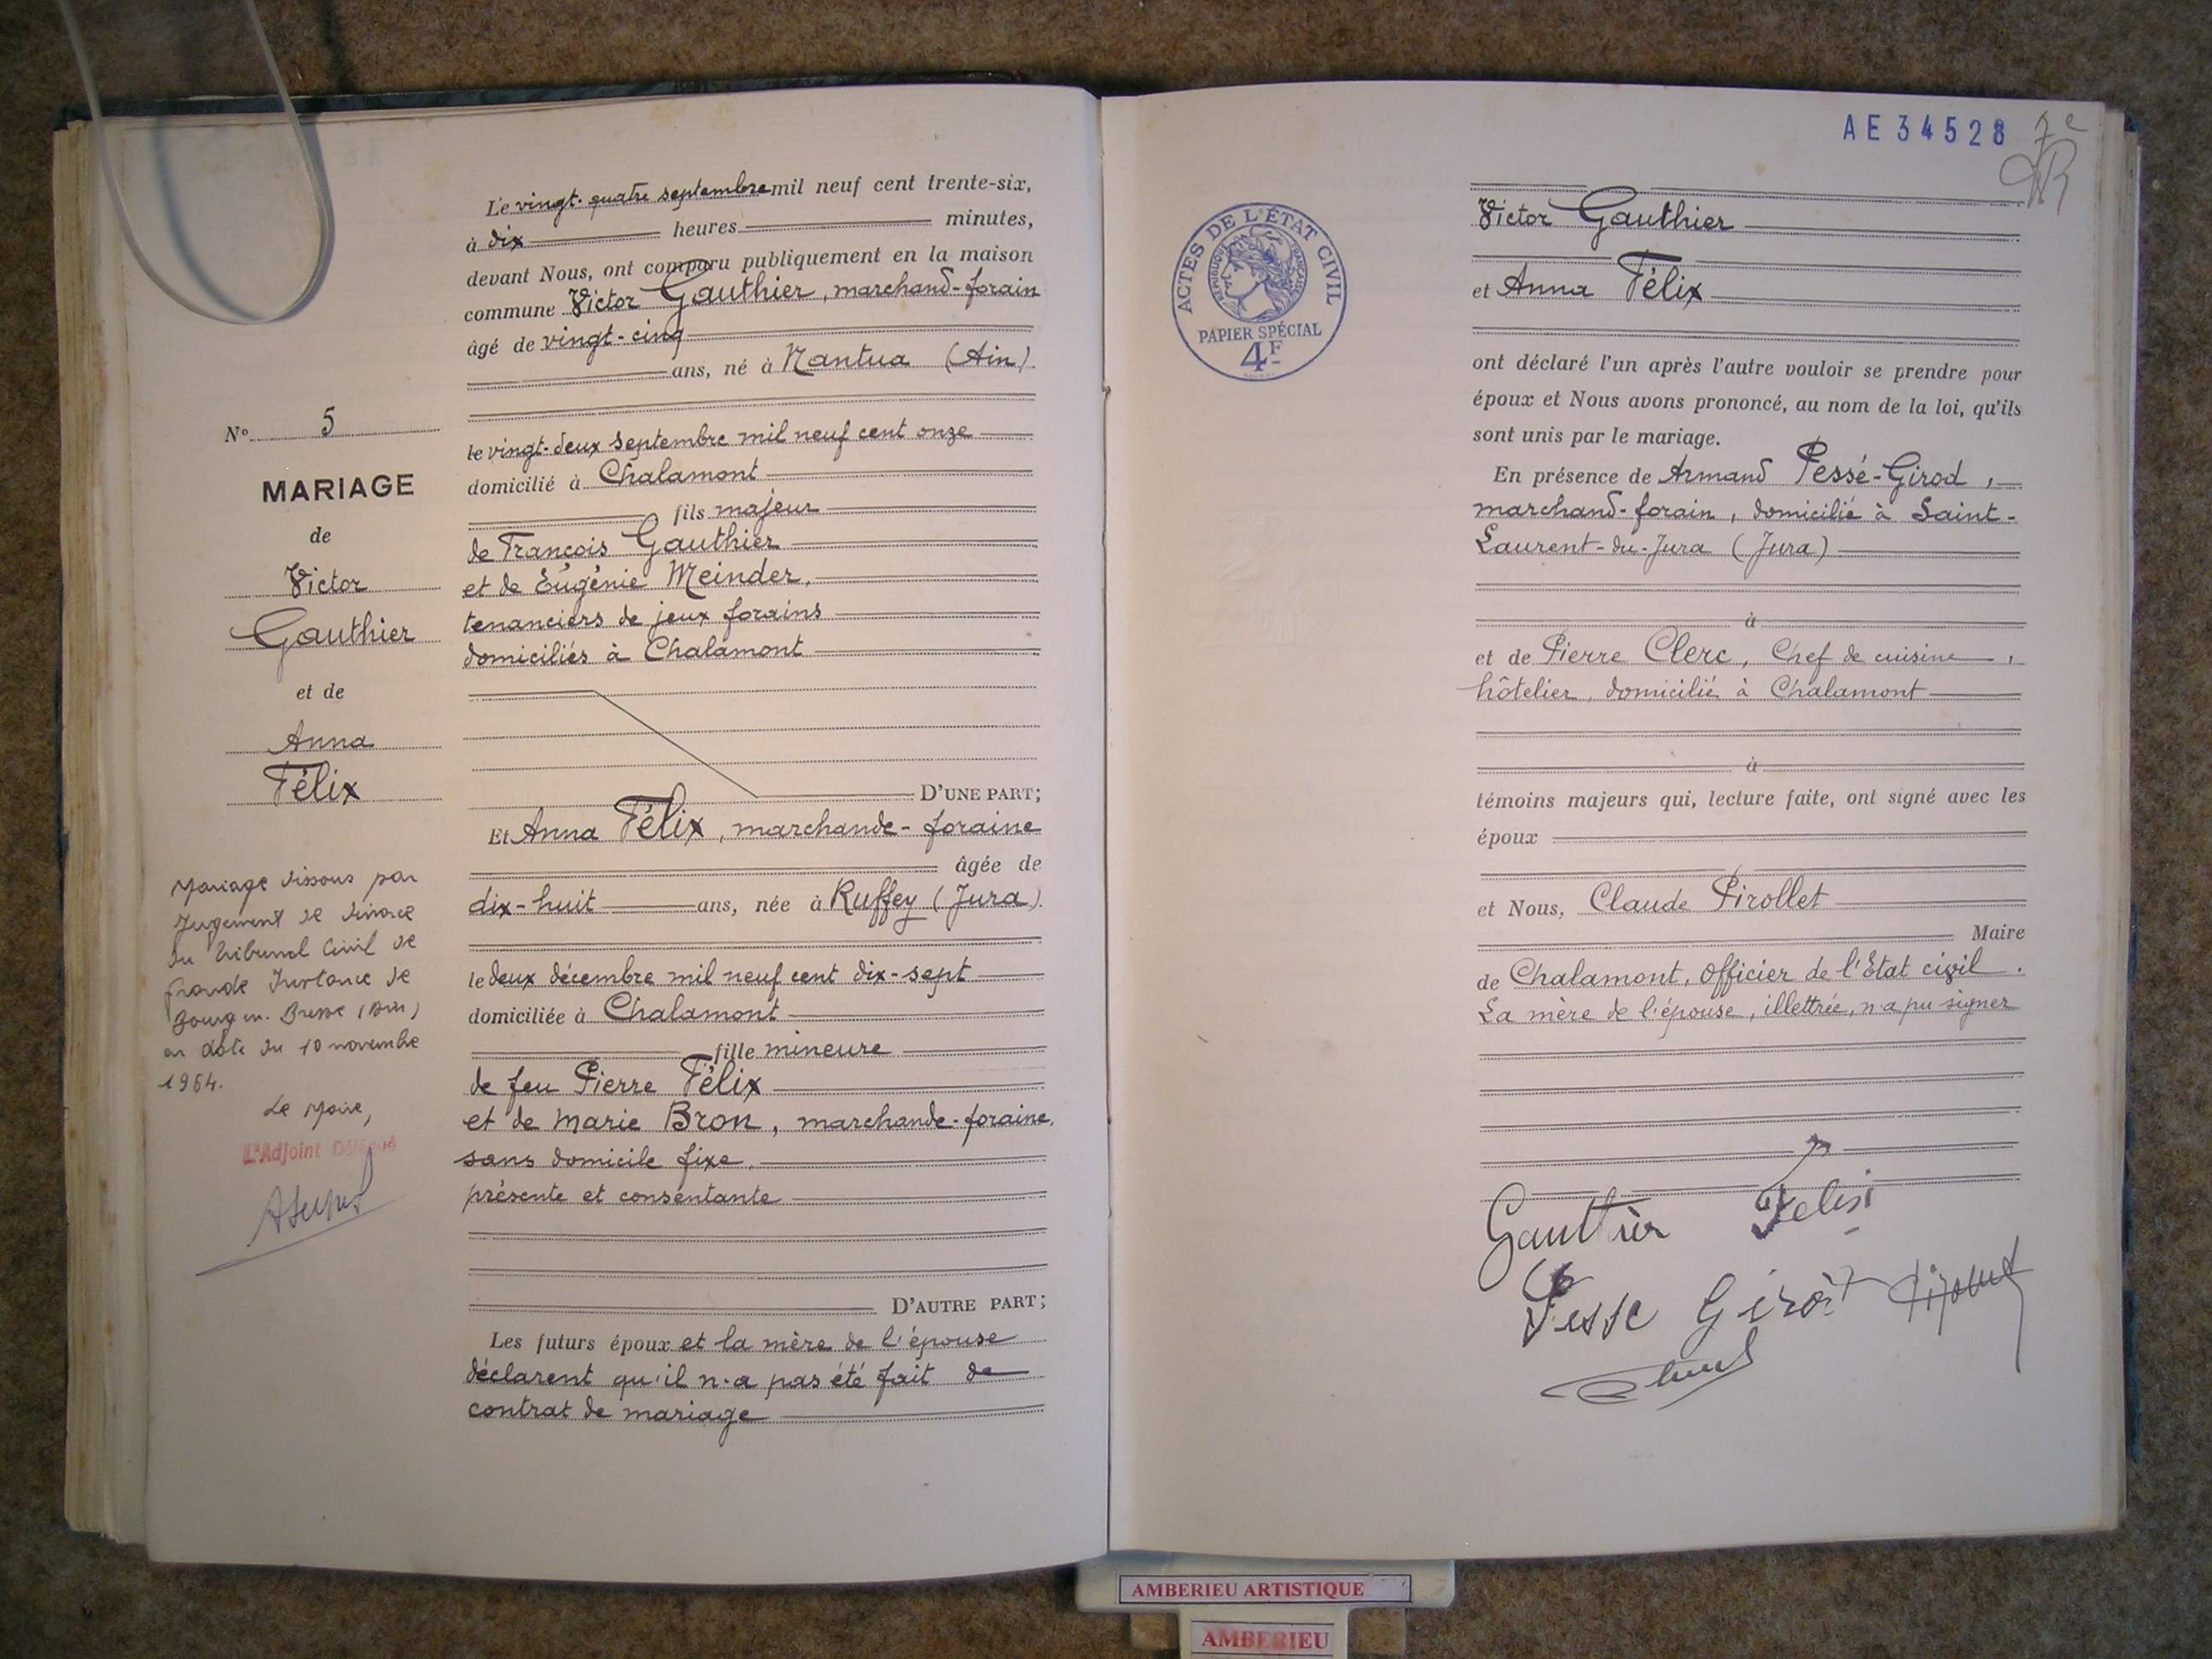 Le vingt-quatre septembre mil neuf cent trente-six,
à dix heures minutes,
devant Nous, ont comparu publiquement en la maison
commune Victor Gauthier, marchand-forain
âgé de vingt-cinq
ans, né à Nantua (Ain)
le vingt-deux septembre mil neuf cent onze
domicilié à Chalamont
fils majeur
de François Gauthier
et de Eugénie Meinder,
tenanciers de jeux forains
domiciliés à Chalamont
D'UNE PART;
Et Anna Félix, marchande-foraine
âgée de
dix-huit ans, née à Ruffey (Jura)
le deux décembre mil neuf cent dix-sept
domiciliée à Chalamont
fille mineure
de feu Pierre Félix
et de Marie Bron, marchande-foraine,
sans domicile fixe,
présente et consentante
D'AUTRE PART;
Les futurs époux et la mère de l'épouse
déclarent qu'il n'a pas été fait de
contrat de mariage
N° 5
MARIAGE
de
Victor
Gauthier
et de
Anna
Félix
Mariage dissous par
Jugement de divorce
du Tribunal Civil de
Grande Instance de
Bourg en Bresse (Ain)
en date du 10 novembre
1964.
Le Maire,
L'Adjoint Délégué
AE 34528
7e
ACTES DE L'ÉTAT CIVIL
RÉPUBLIQUE FRANÇAISE
PAPIER SPÉCIAL
4F
Victor Gauthier
et Anna Félix
ont déclaré l'un après l'autre vouloir se prendre pour
époux et Nous avons prononcé, au nom de la loi, qu'ils
sont unis par le mariage.
En présence de Armand Pessé-Girod,
marchand-forain, domicilié à Saint-
Laurent-du-Jura (Jura)
à
et de Pierre Clerc, Chef de cuisine,
hôtelier, domicilié à Chalamont
à
témoins majeurs qui, lecture faite, ont signé avec les
époux
et Nous, Claude Pirollet
Maire
de Chalamont, Officier de l'Etat civil.
La mère de l'épouse, illettrée, n'a pu signer
Gauthier Felix
Pesse Girod
AMBERIEU ARTISTIQUE
AMBERIEU